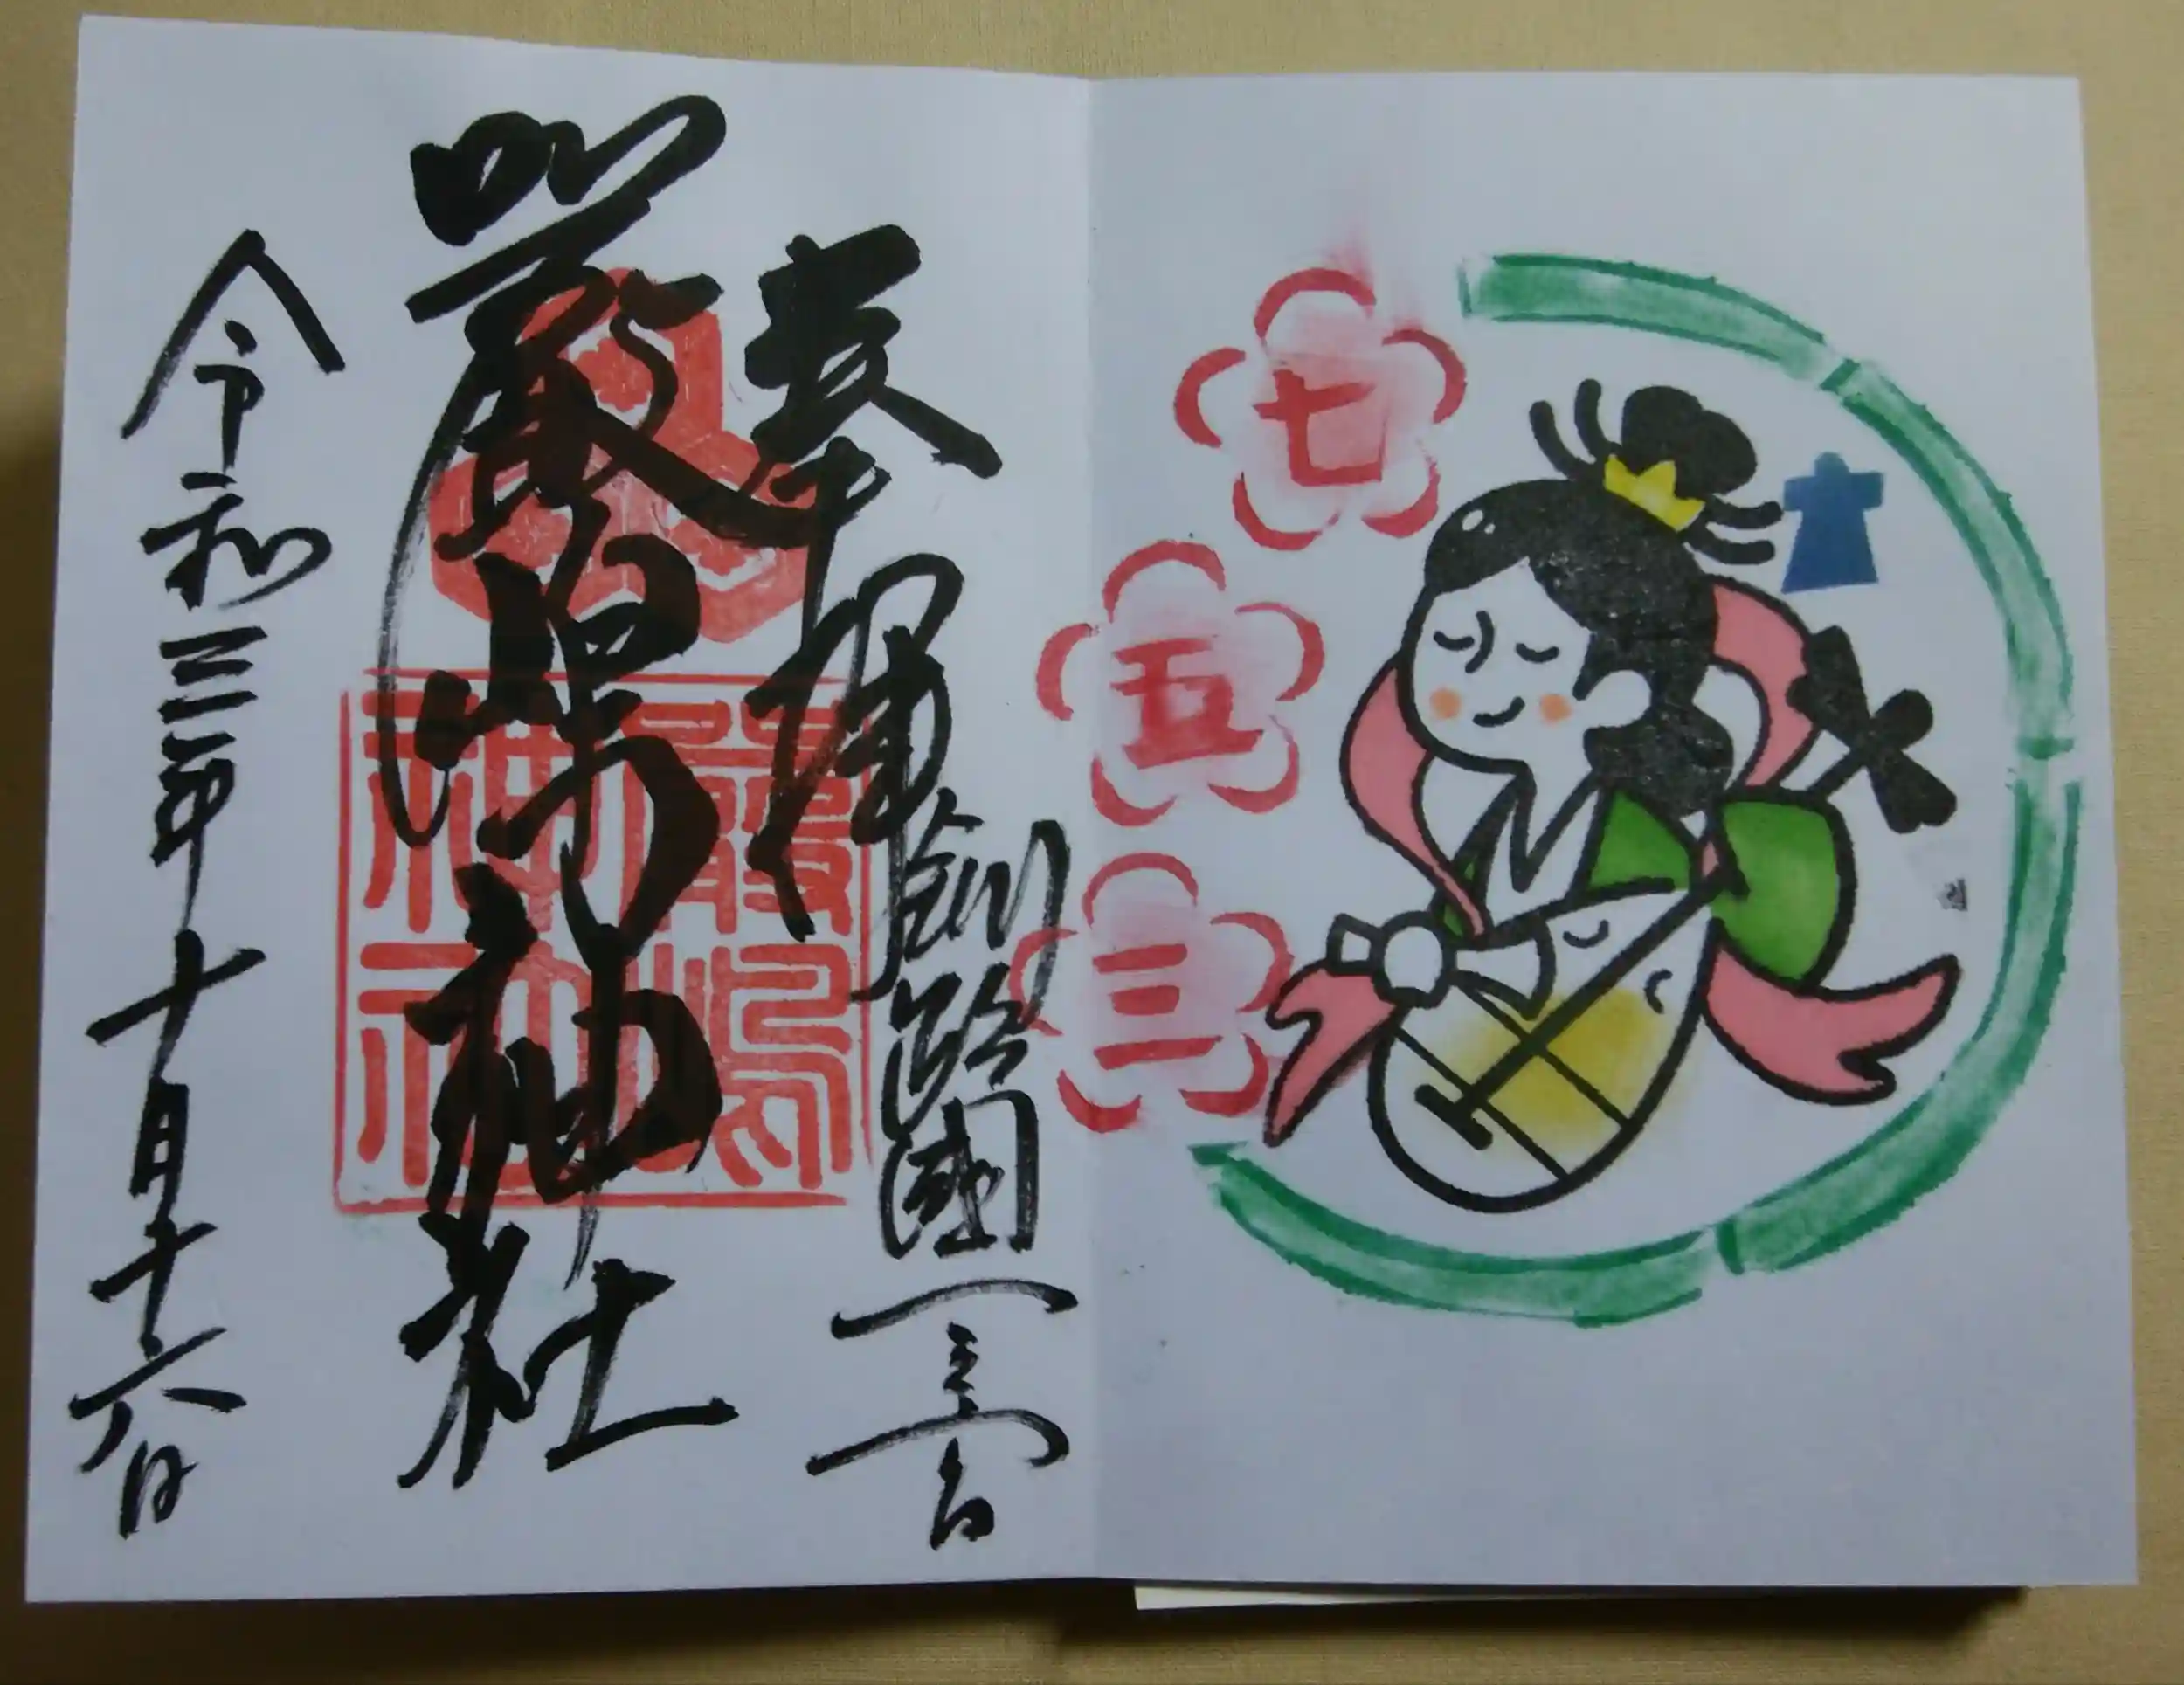 七
五
三
奉拝
釧路國一之宮
嚴島神社
嚴島
神社
令和三年十月十六日